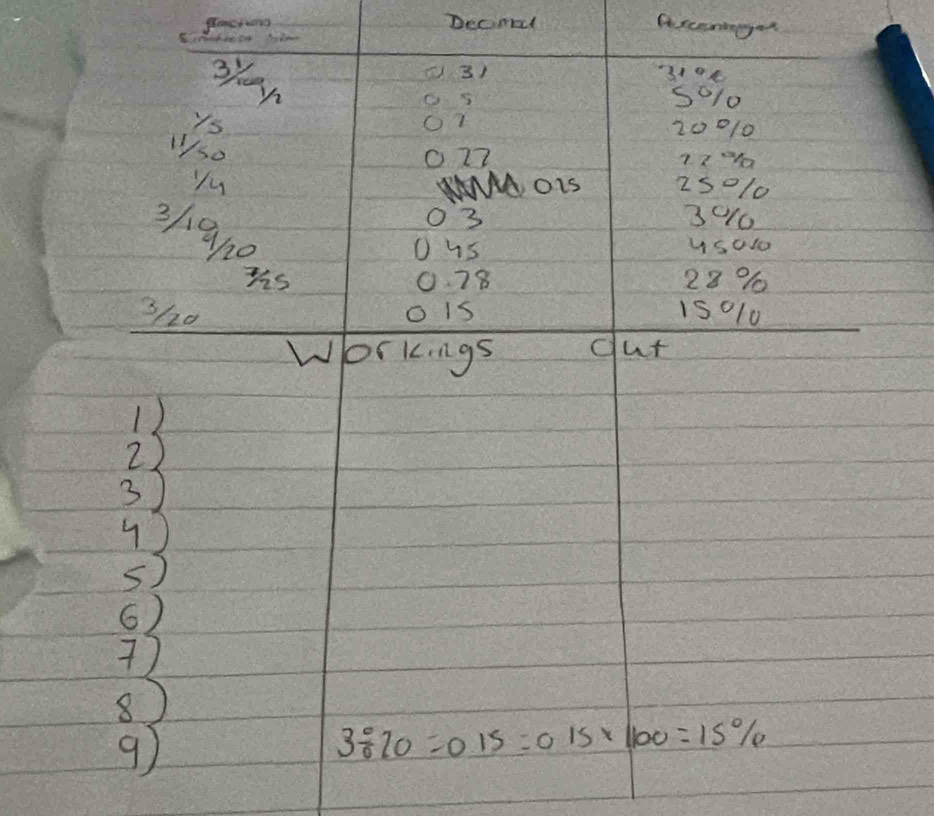 Decimal Percentages
31/100 0 31 31%
1/2 0 5 5%
1/5 0 2 20%
11/50 0 22 22%
1/4 0 25 25%
3/10 0 3 3%
9/20 0 45 45%
7/25 0.28 28%
3/20 0 15 15%
Workings out
1)
2)
3)
4)
5)
6)
7)
8)
9) 3÷20=0 15=0 15×100=15%